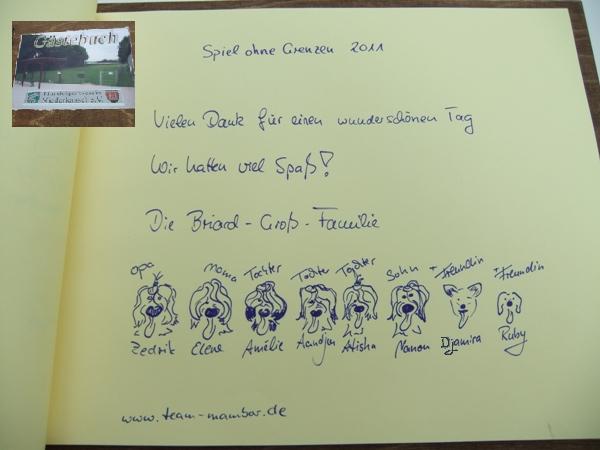 Gästebuch
Hundesportverein
Niederkassel e.V.
Spiel ohne Grenzen 2011
Vielen Dank für einen wunderschönen Tag
Wir hatten viel Spaß!
Die Briard-Groß-Familie
Opa Mama Tochter Tochter Tochter Sohn + Freundin + Freundin
Zedrik Elene Amélie Aandjou Atisha Nanou Djamira Ruby
www.team-mambar.de